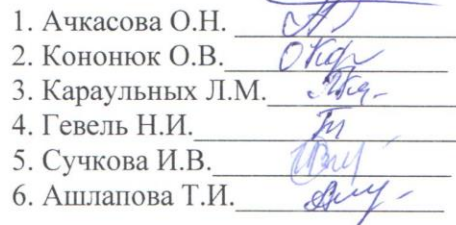 1. Ачкасова О.Н.
2. Кононюк О.В.
3. Караульных Л.М.
4. Гевель Н.И.
5. Сучкова И.В.
6. Ашлапова Т.И.